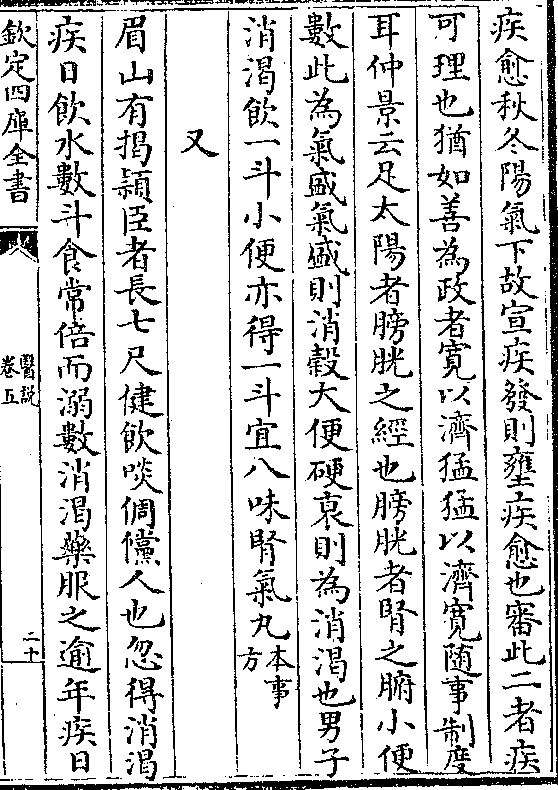 疾愈秋冬陽氣下故宣疾發則壅疾愈也審此二者疾
可理也猶如善為政者寛以濟猛猛以濟寛随事制度
耳仲景云足太陽者膀胱之經也膀胱者腎之腑小便
數此為氣盛氣盛則消穀大便硬衰則為消渴也男子
消渴飲一斗小便亦得一斗宜八味腎氣丸本事方
又
眉山有揭頴臣者長七尺健飲啖倜儻人也忽得消渴
疾日飲水數斗食常倍而溺數消渴藥服之逾年疾日
欽定四庫全書
醫説
卷五
二十